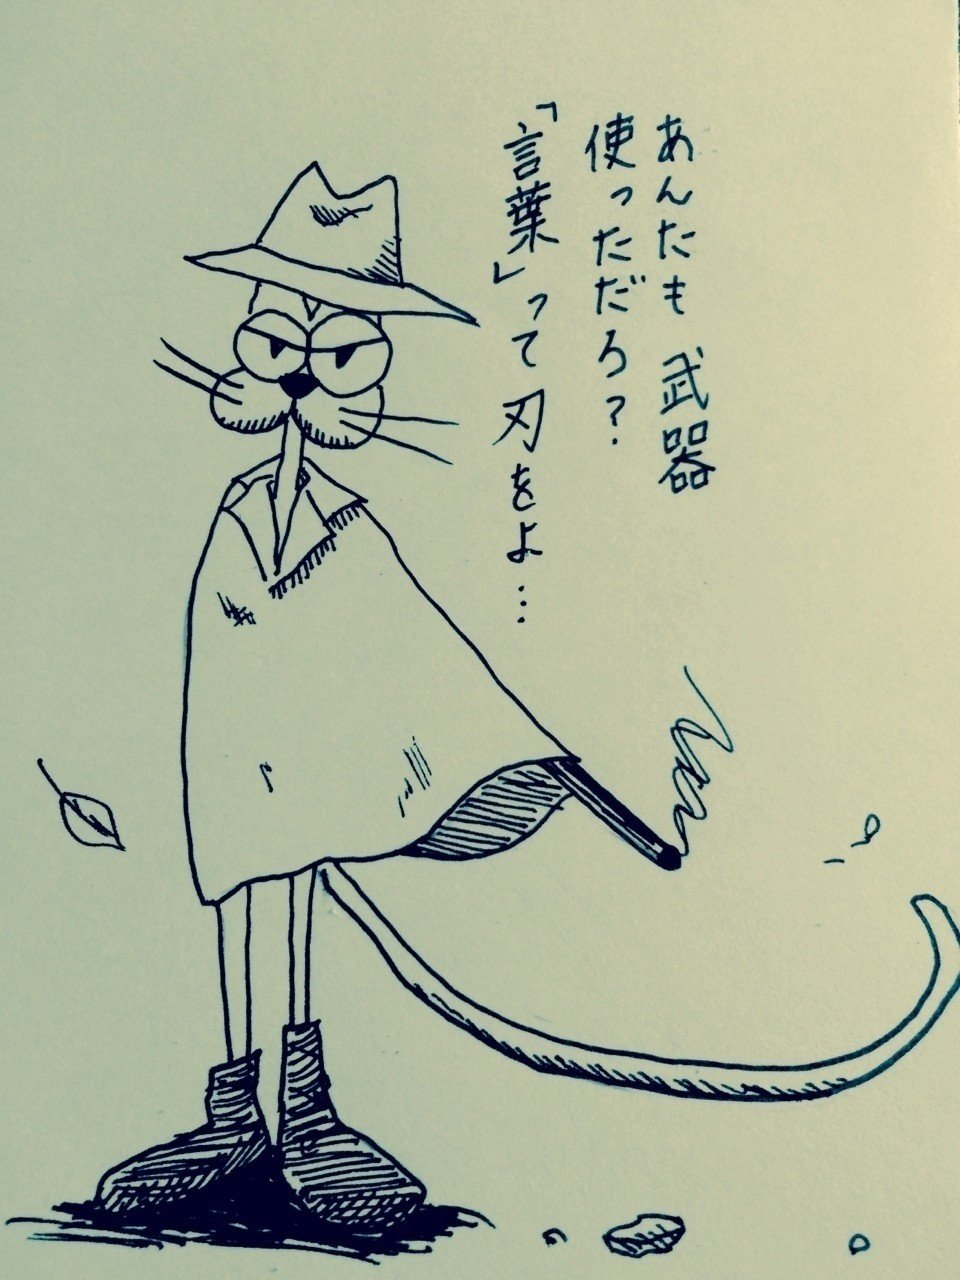 あんたも 武器
使っただろ?
「言葉」って刃をよ…